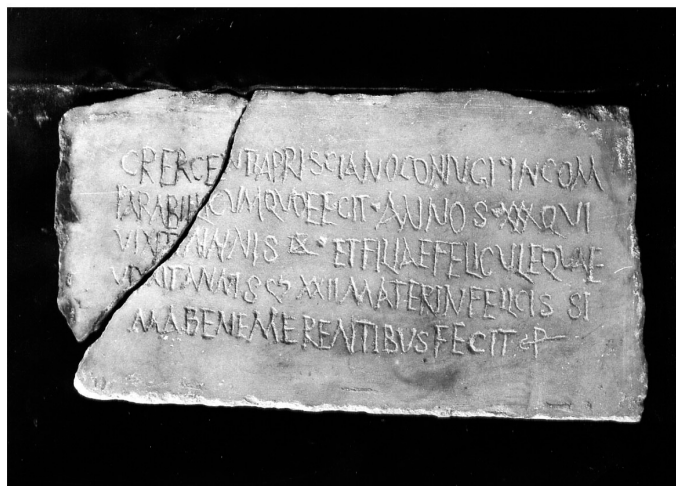 CRERCENTIA PRISCIANO CONIUGI INCOM
PARABILI CUM QUO FECIT ANNOS XXX QUI
VIXIT ANNIS ET FILIAE FELICULE QUAE
VIXIT ANNIS XXII MATER INFELICISSI
MA BENEMERENTIBUS FECIT